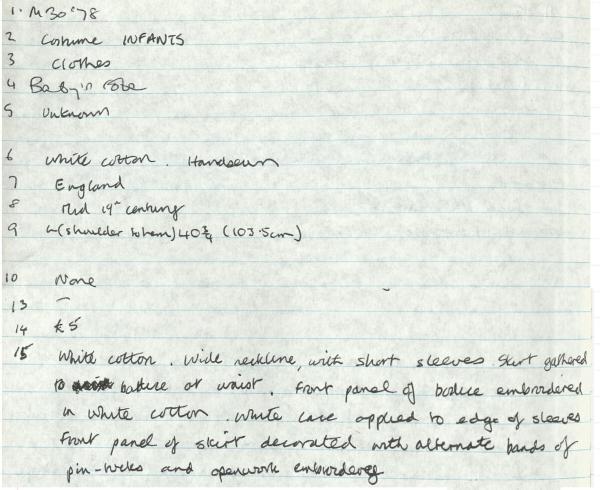 1. M30'78
2 Costume INFANTS
3 Clothes
4 Baby's robe
5 Unknown
6 White cotton. Handsewn
7 England
8 Mid 19th century
9 L(shoulder to hem) 40¾ (103.5cm)
10 None
13 —
14 £5
15 White cotton. Wide neckline, with short sleeves. Skirt gathered
to bodice at waist. Front panel of bodice embroidered
in white cotton. White lace applied to edge of sleeves
Front panel of skirt decorated with alternate bands of
pin-tucks and openwork embroidery